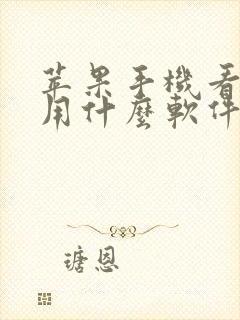 苹果手機看
用什麼軟件
瑭恩